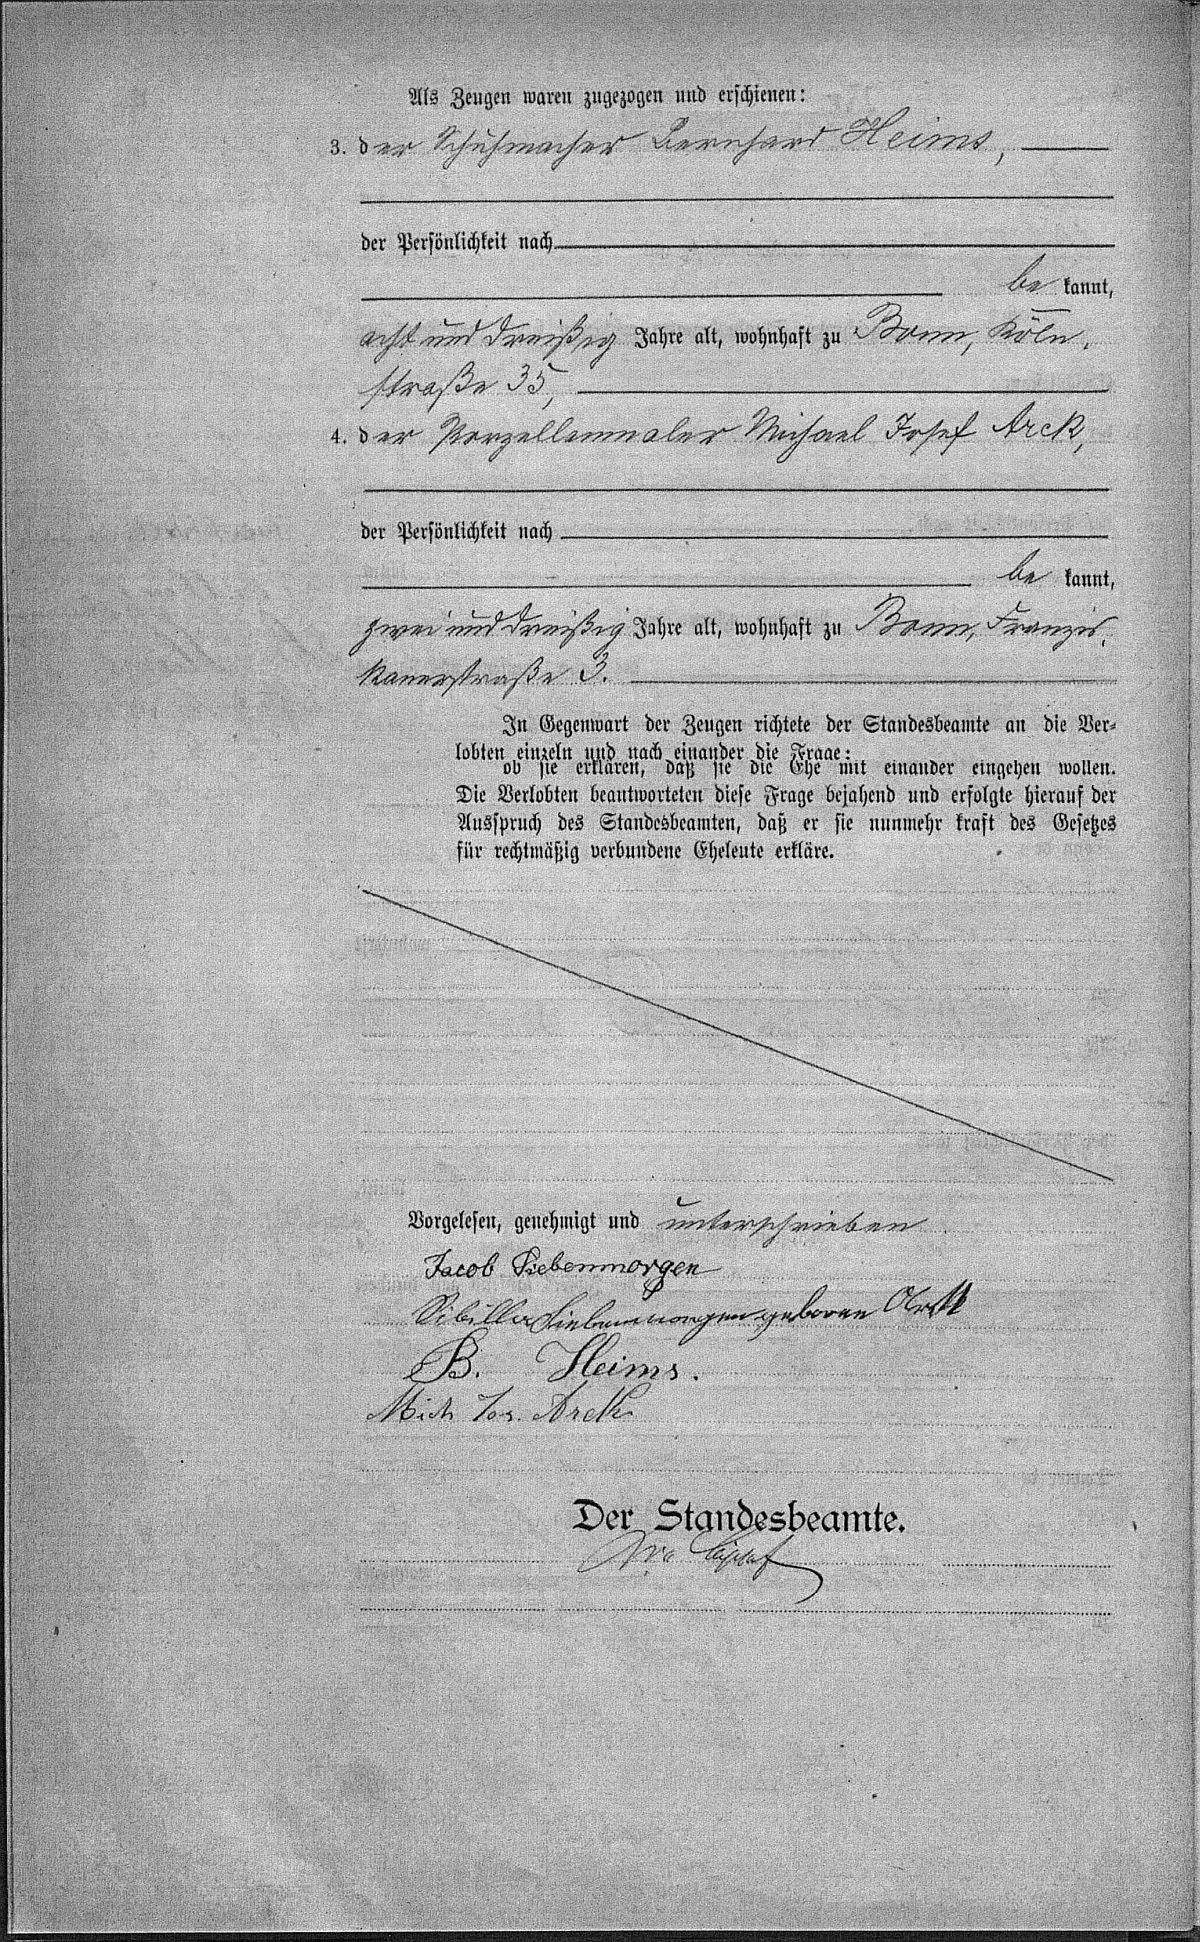 Als Zeugen waren zugezogen und erschienen:
3. der Schuhmacher Bernhard Heims,
der Persönlichkeit nach
be kannt,
acht und dreißig Jahre alt, wohnhaft zu Bonn, Köln-
straße 35,
4. der Porzellanmaler Michael Josef Arck,
der Persönlichkeit nach
be kannt,
zwei und dreißig Jahre alt, wohnhaft zu Bonn, Franzis-
kanerstraße 3.
In Gegenwart der Zeugen richtete der Standesbeamte an die Ver-
lobten einzeln und nach einander die Frage:
ob sie erklären, daß sie die Ehe mit einander eingehen wollen.
Die Verlobten beantworteten diese Frage bejahend und erfolgte hierauf der
Ausspruch des Standesbeamten, daß er sie nunmehr kraft des Gesetzes
für rechtmäßig verbundene Eheleute erkläre.
Vorgelesen, genehmigt und unterschrieben
Jacob Siebenmorgen
Sibilla Siebenmorgen geboren
B. Heims.
Mich Jos. Arck
Der Standesbeamte.